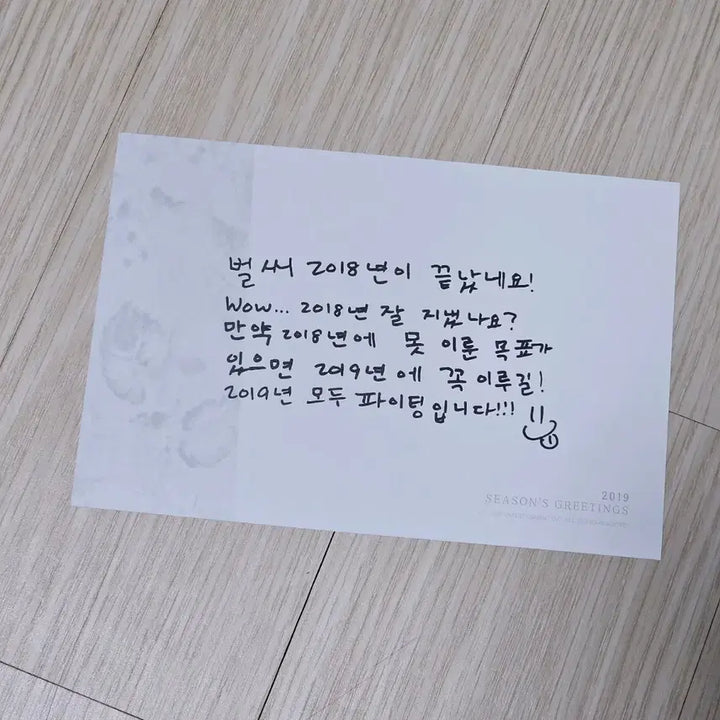 벌써 2018년이 끝났네요!
Wow... 2018년 잘 지냈나요?
만약 2018년에 못 이룬 목표가
있으면 2019년에 꼭 이루길!
2019년 모두 파이팅입니다!!!
2019
SEASON'S GREETINGS